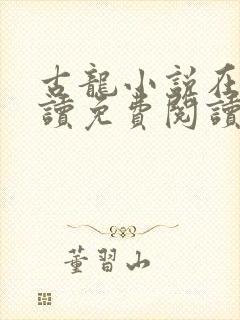 古龍小說在
讀免費閱讀
董習山